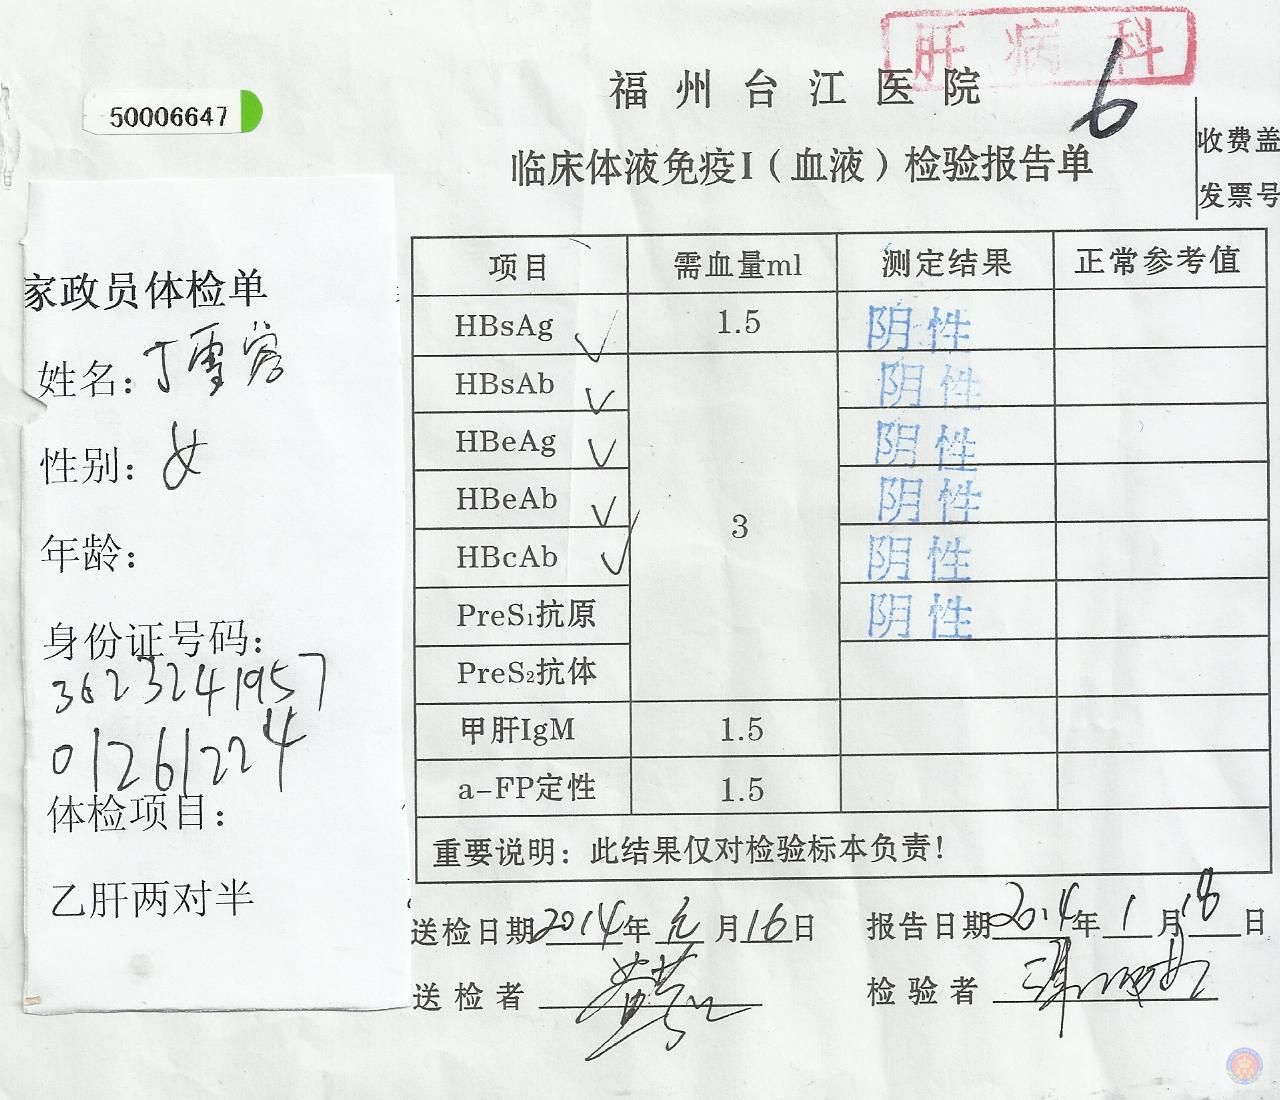 肝病科
福州台江医院
6
50006647
收费盖
临床体液免疫I（血液）检验报告单
发票号
家政员体检单
姓名：丁雪容
性别：女
年龄：
身份证号码：
3623241957
01261224
体检项目：
乙肝两对半
项目 需血量ml 测定结果 正常参考值
HBsAg ✓ 1.5 阴性
HBsAb ✓ 阴性
HBeAg ✓ 阴性
HBeAb ✓ 3 阴性
HBcAb ✓ 阴性
PreS₁抗原 阴性
PreS₂抗体
甲肝IgM 1.5
a-FP定性 1.5
重要说明：此结果仅对检验标本负责！
送检日期2014年元月16日 报告日期2014年1月18日
送检者 检验者